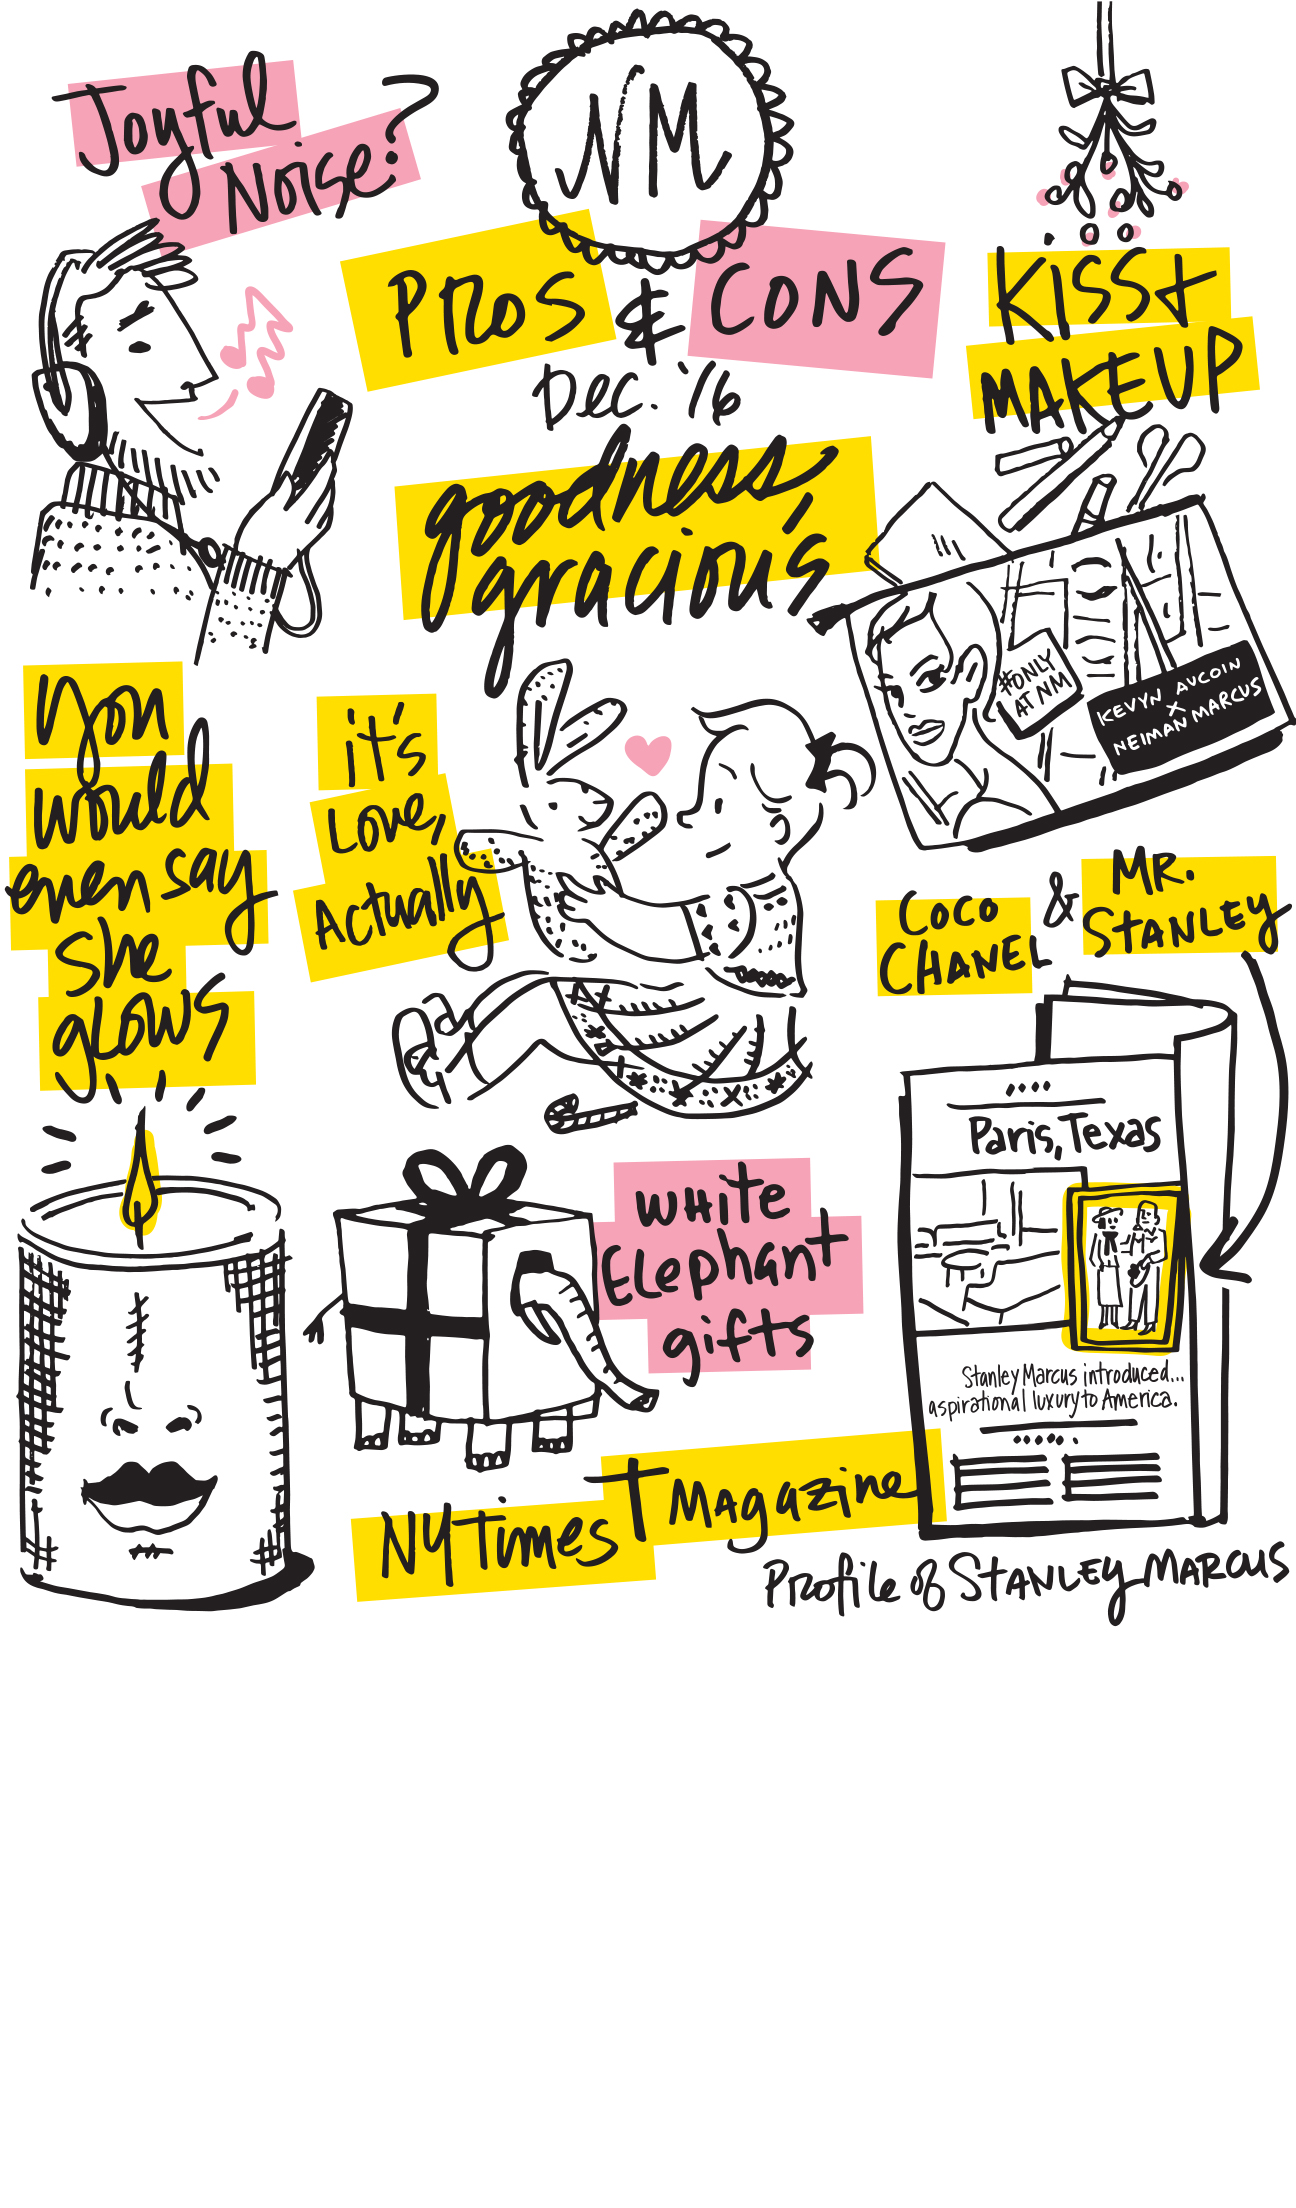 Joyful
Noise?
NM
Pros & Cons
Dec. '16
goodness,
gracious
Kiss +
MAKEUP
#ONLY
AT NM
KEVYN AUCOIN
X
NEIMAN MARCUS
you
would
even say
she
glows
it's
Love,
Actually
COCO
CHANEL
&
MR.
STANLEY
Paris, Texas
Stanley Marcus introduced...
aspirational luxury to America.
WHite
Elephant
gifts
NY Times T Magazine
Profile of STANLEY MARCUS